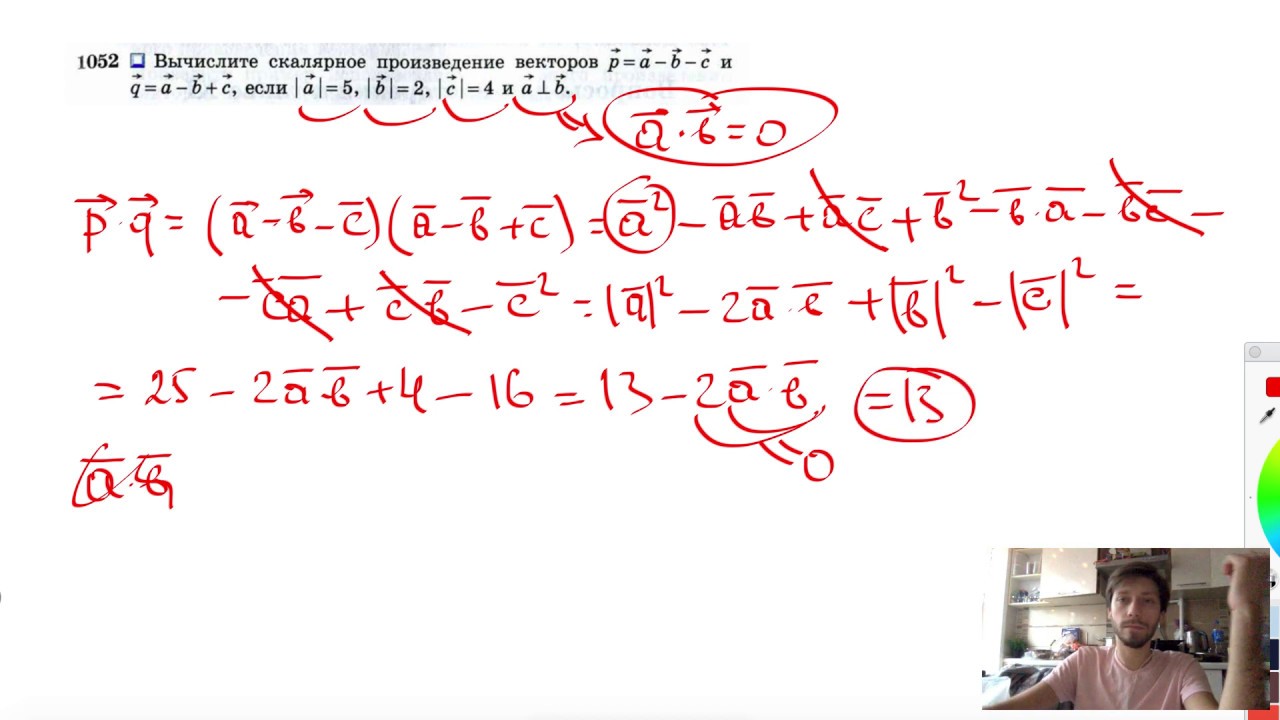 1052 Вычислите скалярное произведение векторов p⃗ = a⃗ − b⃗ − c⃗ и
q⃗ = a⃗ − b⃗ + c⃗, если |a⃗| = 5, |b⃗| = 2, |c⃗| = 4 и a⃗ ⊥ b⃗.
a⃗ · в⃗ = 0
p⃗ · q⃗ = (a⃗ − в⃗ − c̄)(ā − в̄ + c̄) = ā² − ā в̄ + ā c̄ + в̄² − в̄ · ā − в̄ c̄ −
− c̄ ā + c̄ в̄ − c̄² = |ā|² − 2ā · в̄ + |в̄|² − |c̄|² =
= 25 − 2ā в̄ + 4 − 16 = 13 − 2ā · в̄ = 13
= 0
ā · в̄